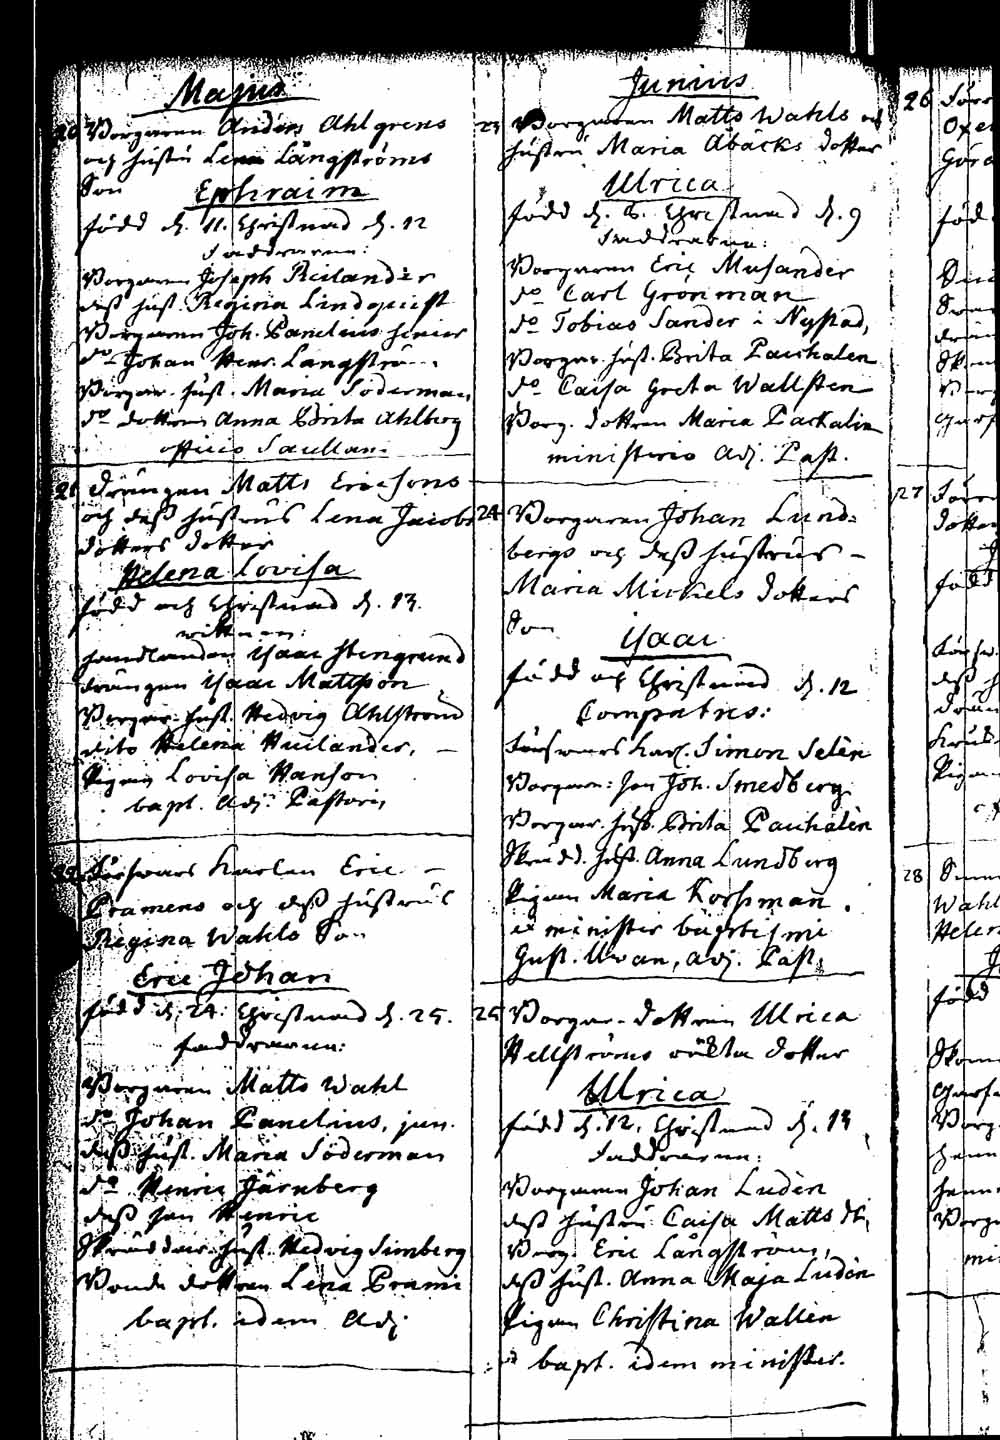 Majus
20 Borgaren Anders Ahlgrens
och hustru Lena Långströms
Son
Ephraim
född d. 11. Christnad d. 12
Faddrarne:
Borgaren Joseph Reilander
dess hust. Regina Lindquist
Borgaren Joh. Panelius senior
do Johan Henr. Långström
Borgar. hust. Maria Söderman
do dottren Anna Brita Ahlberg
21 Drängen Matts Ericsons
och dess hustrus Lena Jacobs
dotters dotter
Helena Lovisa
född och Christnad d. 13.
wittnen:
handlanden Isaac Stengrund
drängen Isaac Mattson
Borgar. hust. Hedvig Ahlström
dito Helena Huilander,
Pigan Lovisa Hanson
bapt. Adj. Pastoris
22 Försvars Karlen Eric
Pramens och dess hustrus
Regina Wahls Son
Eric Johan
född d. 24. Christnad d. 25.
faddrarne:
Borgaren Matts Wahl
do Johan Panelius, jun.
dess hust. Maria Söderman
do Henric Järnberg
dess son Henric
Skräddar. hust. Hedvig Simberg
Bonde dottren Lena Prami
bapt. idem Adj
Junius
23 Borgaren Matts Wahls och
hustru Maria Abäcks dotter
Ulrica
född d. 8. Christnad d. 9
Faddrarne:
Borgaren Eric Musander
do Carl Grönman
do Tobias Sander i Nystad,
Borgar. hust. Brita Pauhalen
do Caisa Greta Wallsten
Borg. dottren Maria Packalin
ministerio Adj. Past.
24 Borgaren Johan Lund-
bergs och dess hustrus
Maria Mickels dotters
Son
Isaac
född och Christnad d. 12
Compatres:
Försvars karl. Simon Selèn
Borgare son Joh. Smedberg
Borgar. hust. Brita Pauhalèn
Skrädd. hust. Anna Lundberg
Pigan Maria Korsman.
minister baptismi
Gust. Uvan, adj. Past.
25 Borgar-dottren Ulrica
Hellströms oäkta dotter
Ulrica
född d. 12. Christnad d. 13
Faddrarne:
Borgaren Johan Ludèn
dess hustru Caisa Matts dr,
Borg. Eric Långström,
dess hust. Anna Maja Ludèn
Pigan Christina Wallèn
bapt. idem minister.
26
27
28
Wahl
Helen
född